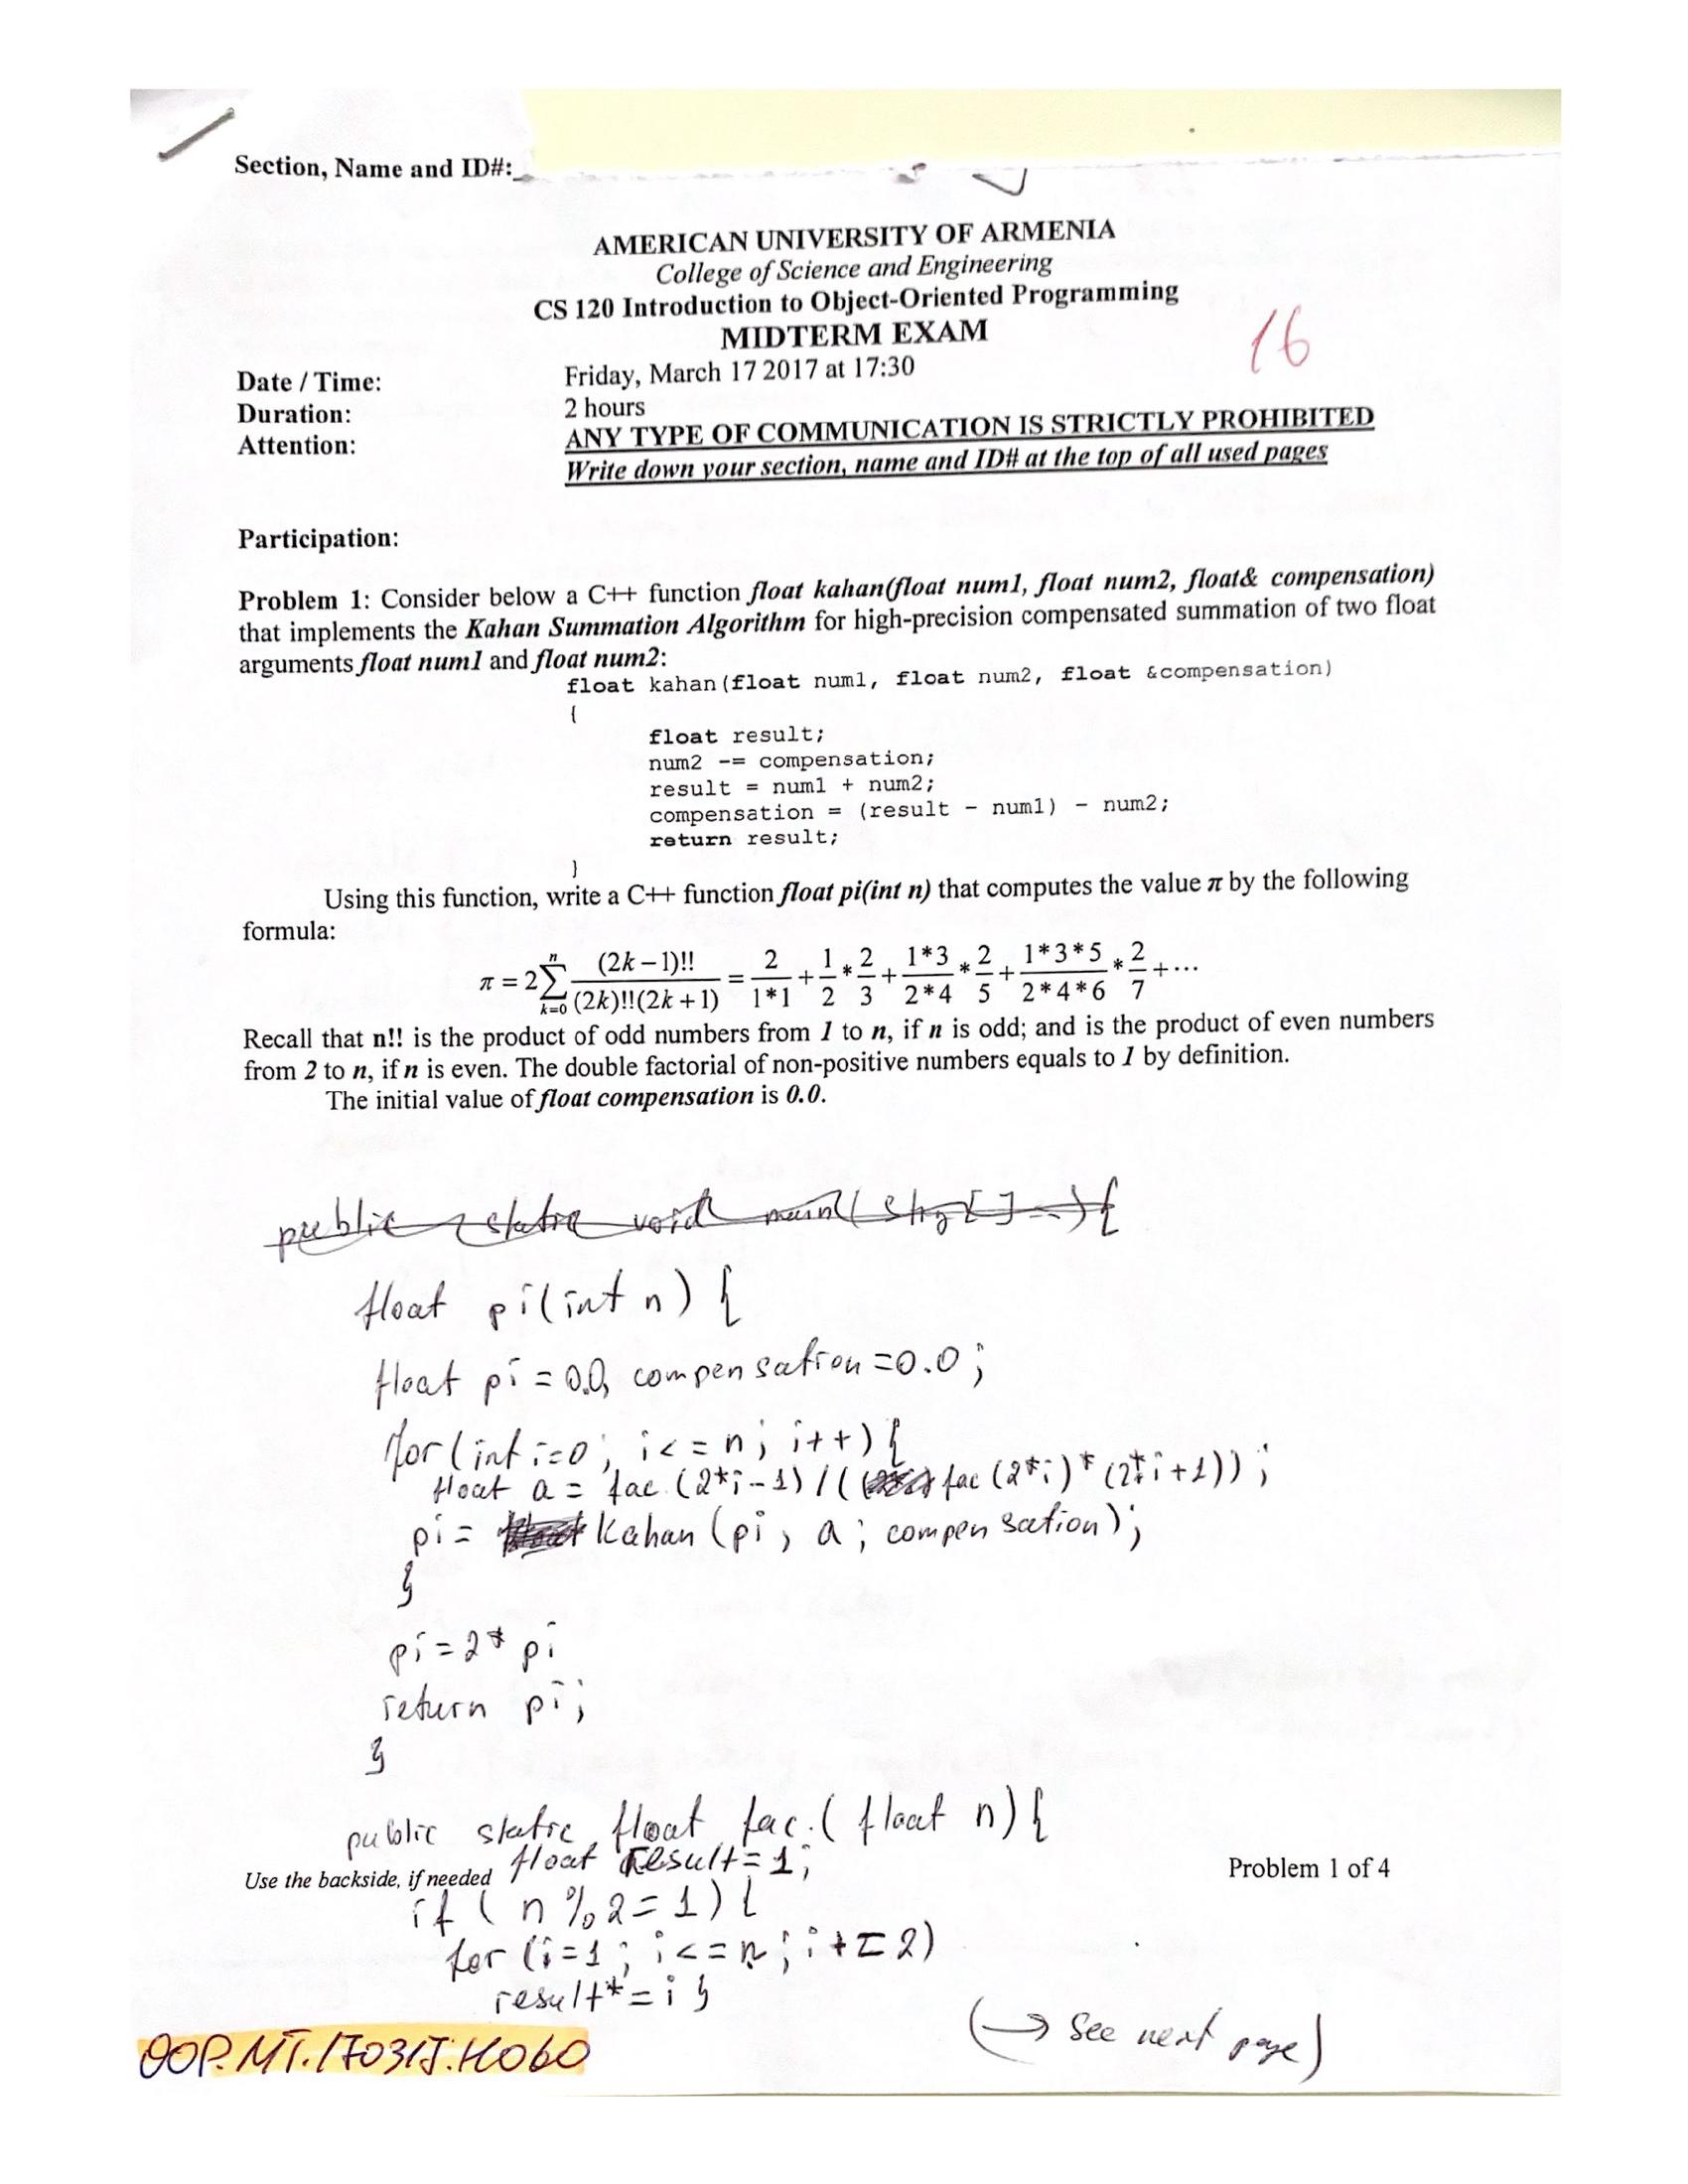 Section, Name and ID#:
AMERICAN UNIVERSITY OF ARMENIA
College of Science and Engineering
CS 120 Introduction to Object-Oriented Programming
MIDTERM EXAM
16
Date / Time: Friday, March 17 2017 at 17:30
Duration: 2 hours
Attention: ANY TYPE OF COMMUNICATION IS STRICTLY PROHIBITED
Write down your section, name and ID# at the top of all used pages
Participation:
Problem 1: Consider below a C++ function float kahan(float num1, float num2, float& compensation)
that implements the Kahan Summation Algorithm for high-precision compensated summation of two float
arguments float num1 and float num2:
float kahan(float num1, float num2, float &compensation)
{
float result;
num2 -= compensation;
result = num1 + num2;
compensation = (result - num1) - num2;
return result;
}
Using this function, write a C++ function float pi(int n) that computes the value π by the following
formula:
π = 2 ∑_{k=0}^{n} (2k-1)!! / ((2k)!!(2k+1)) = 2/(1*1) + 1/2 * 2/3 + (1*3)/(2*4) * 2/5 + (1*3*5)/(2*4*6) * 2/7 + ⋯
Recall that n!! is the product of odd numbers from 1 to n, if n is odd; and is the product of even numbers
from 2 to n, if n is even. The double factorial of non-positive numbers equals to 1 by definition.
The initial value of float compensation is 0.0.
public static void main(
float pi(int n) {
float pi = 0.0, compensation = 0.0;
for(int i=0; i<=n; i++) {
float a = fac.(2*i-1)/((fac(2*i)*(2*i+1));
pi = kahan(pi, a; compensation);
}
pi = 2* pi
return pi;
}
public static float fac.(float n){
float result=1;
Use the backside, if needed Problem 1 of 4
if (n%2=1){
for (i=1; i<=n; i+=2)
result*=i }
(→ see next page)
OOP.MT.170317.H060